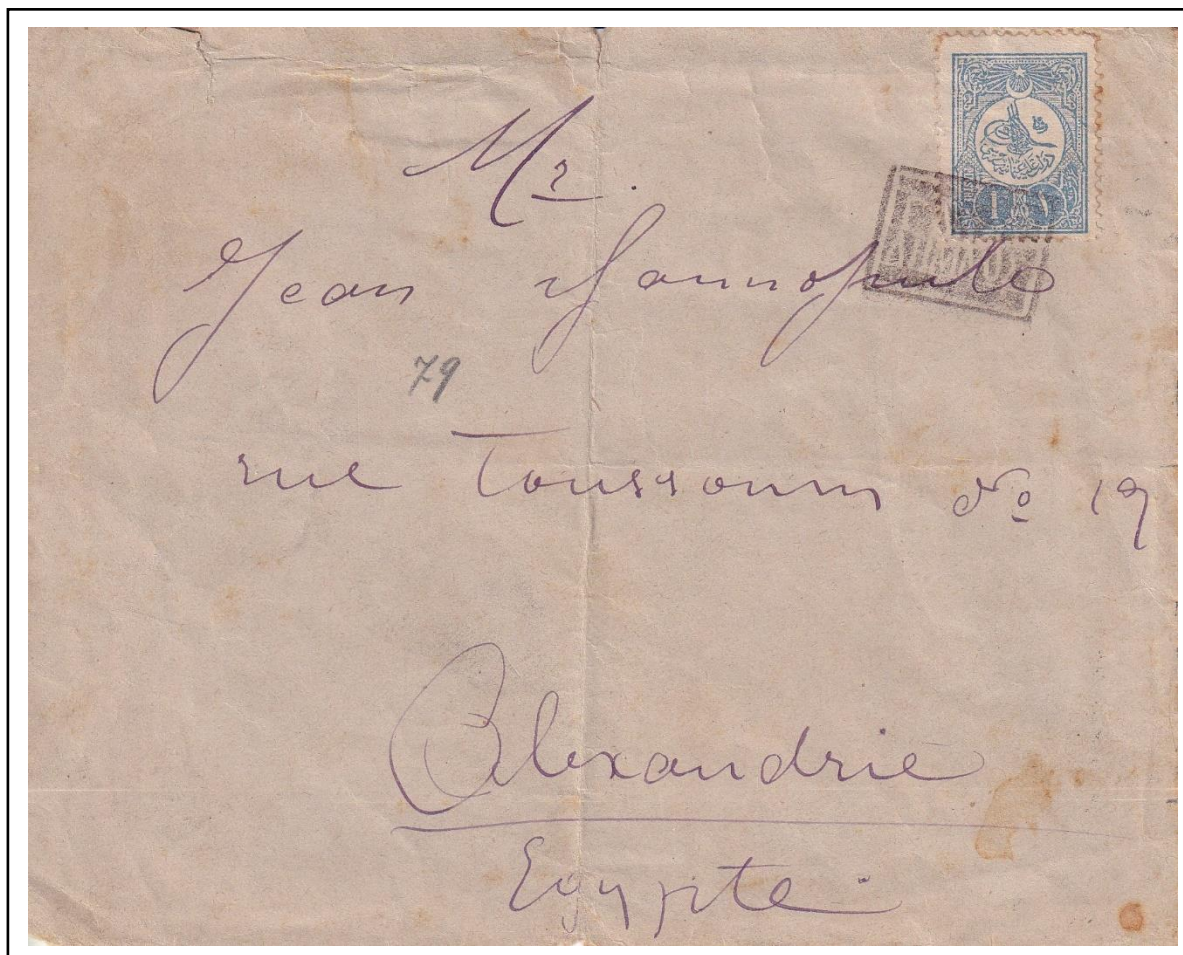 Mr.
Jean Yannopulo
79
rue Toussoum No 19
Alexandrie
Egypte
1 ١